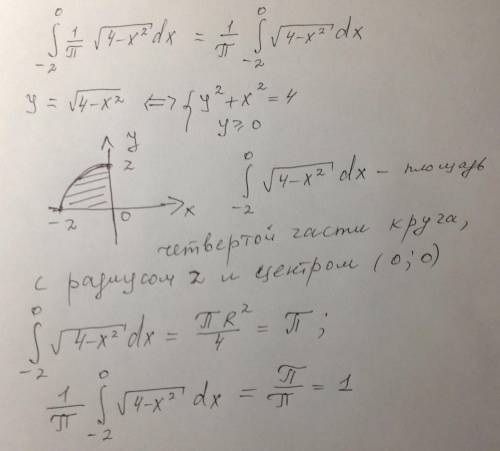 ∫₋₂⁰ 1/π √(4-x²) dx = 1/π ∫₋₂⁰ √(4-x²) dx
y = √(4-x²) ⇔ { y² + x² = 4
y ≥ 0
y
2
-2 0 x
∫₋₂⁰ √(4-x²) dx - площадь
четвертой части круга,
с радиусом 2 и центром (0;0)
∫₋₂⁰ √(4-x²) dx = πR²/4 = π;
1/π ∫₋₂⁰ √(4-x²) dx = π/π = 1